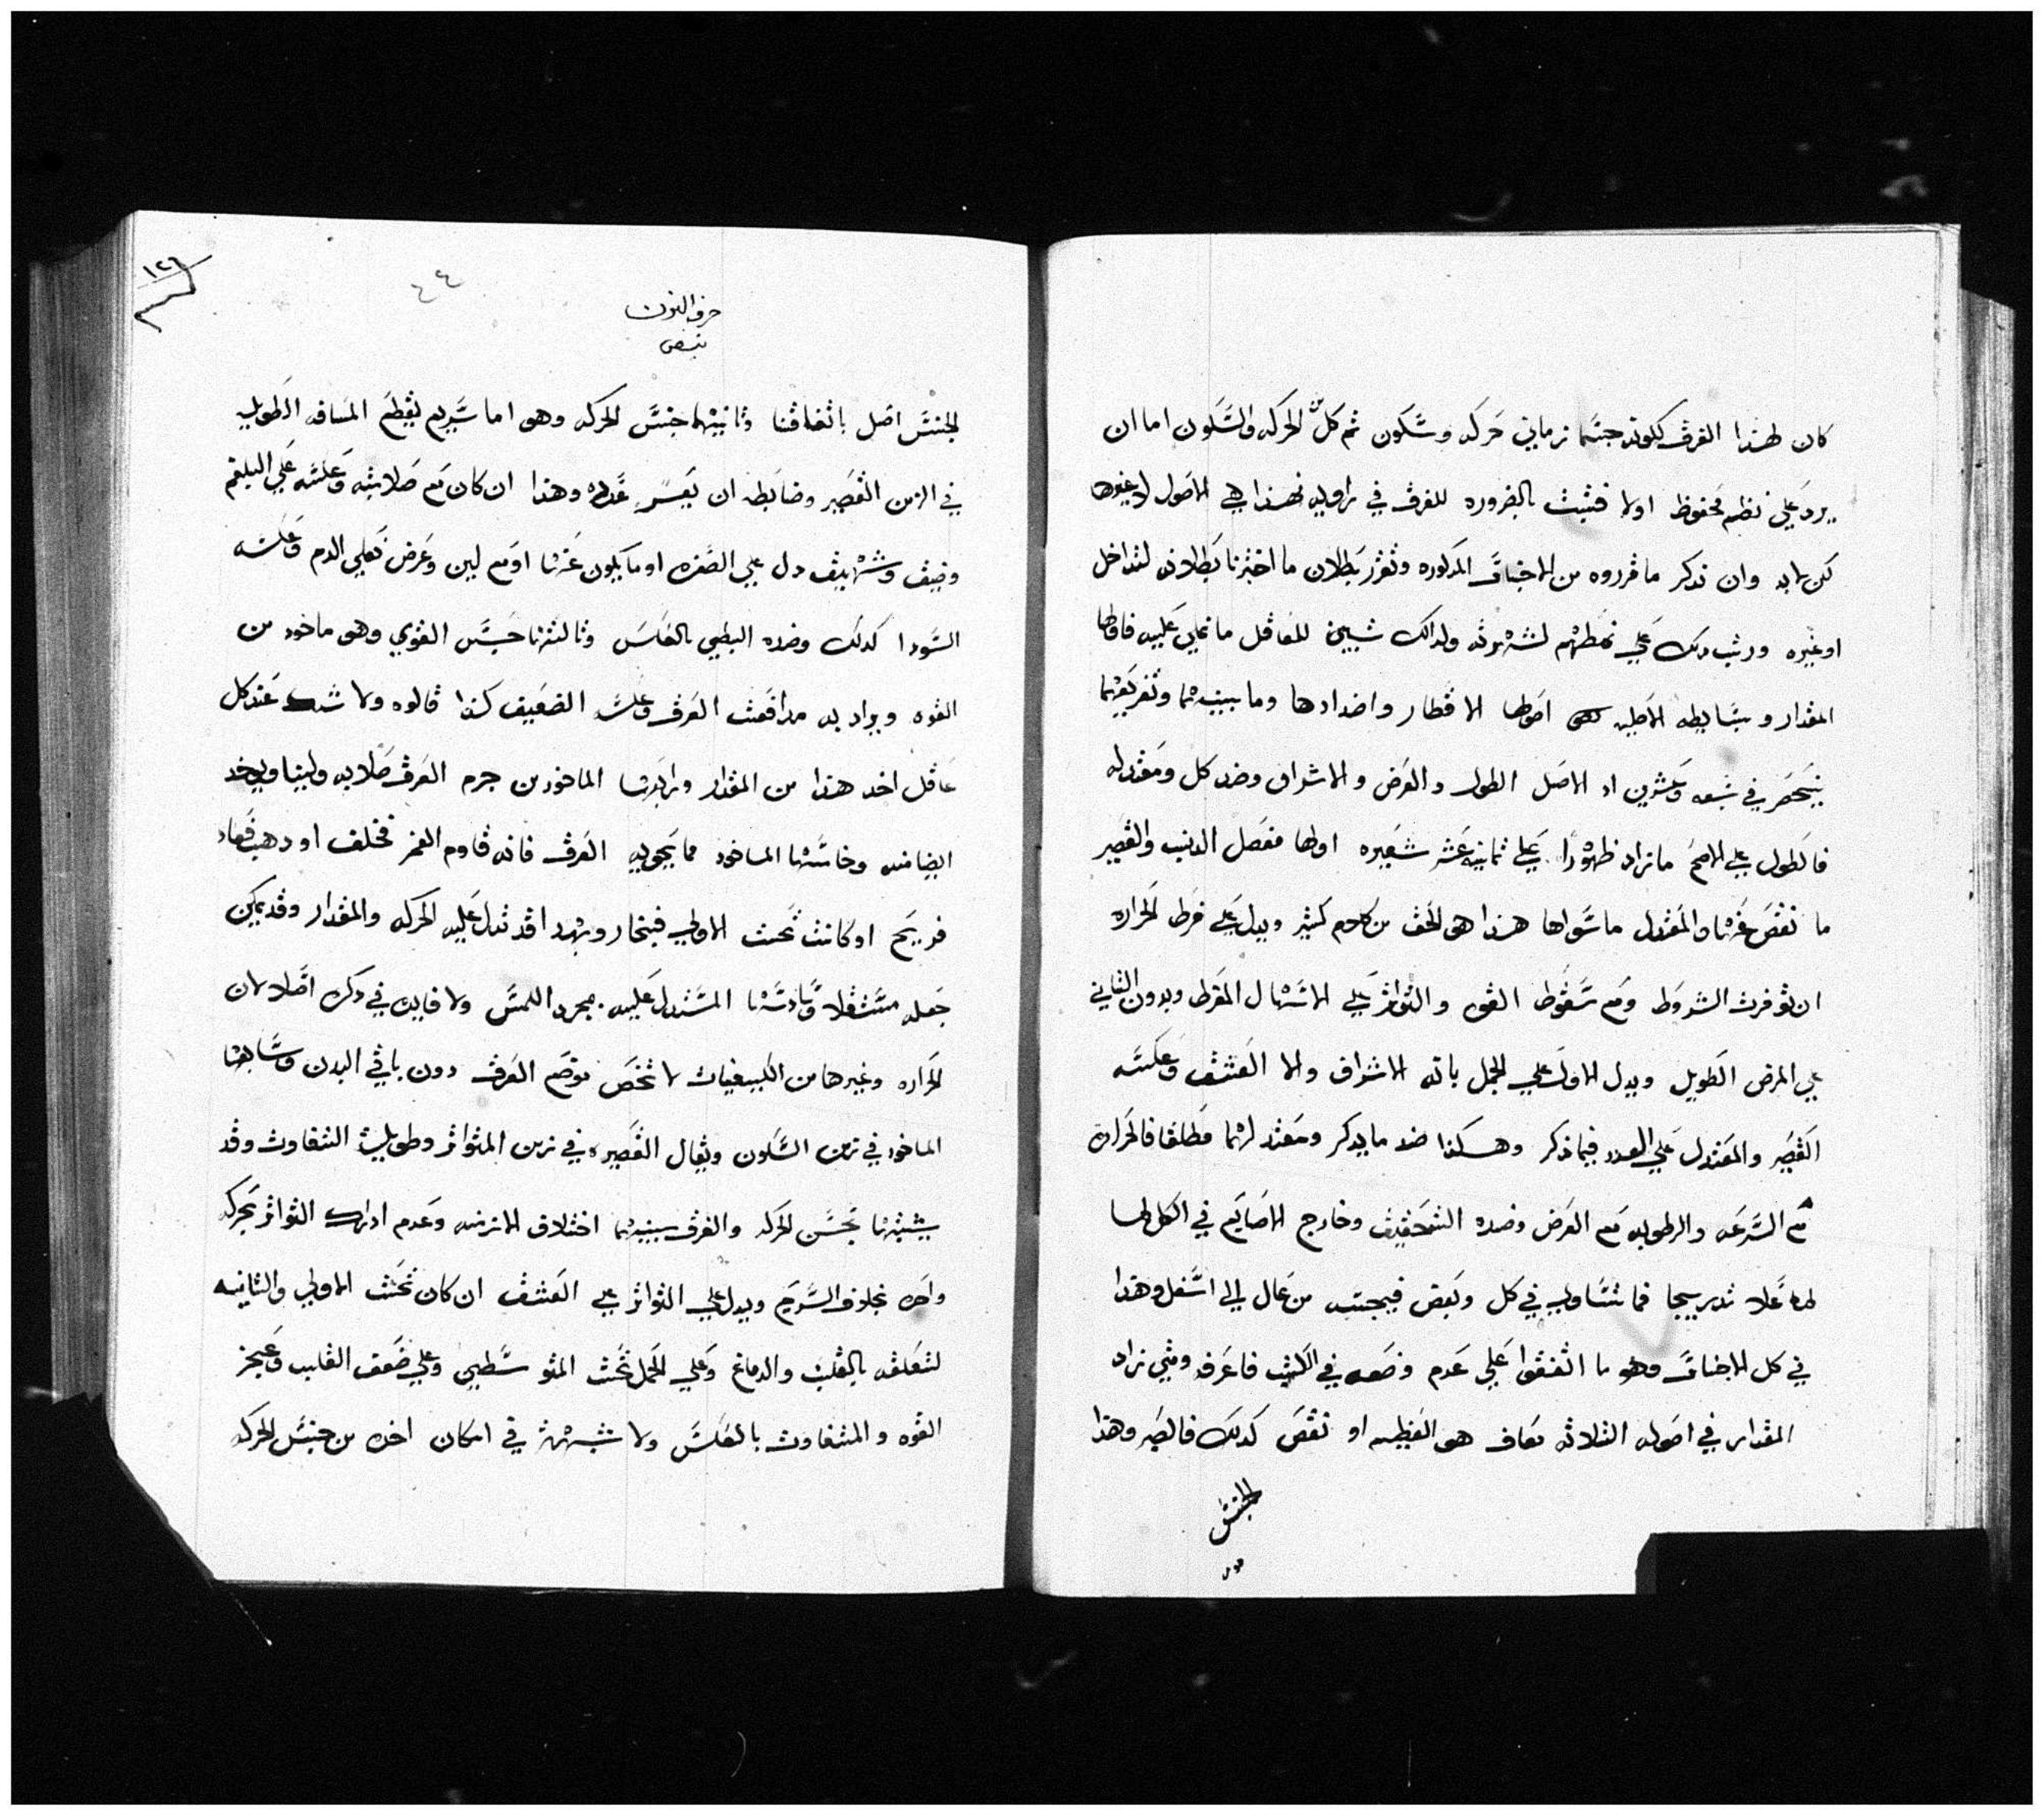 كان لهذا العرق ككونه جسما زماني حركه وسكون ثم كل من الحركه والسكون اما ان
يرد علي نظم محفوظ اولا فثبت بالضروره للعرق في زاويه فهذا هي الاصول لا غيرها
لكن لابد وان نذكر ما قرروه من الاجناس المذكوره ونقرر بطلان ما اخترنا بطلانه لتداخل
او غيره ورتب ذلك علي نمطهم لشهرته ولذلك تبيين للعاقل ما نملي عليه فاولها
المقدار وبسايطه الاصليه اصولها الاقطار واضدادها وما بينهما وتفريعهما
ينحصر في تسعه وعشرين اذ الاصل الطول والعرض والاشراف وضد كل ومعتدله
فالطول علي الاصح ما زاد ظهورا علي ثمانية عشر شعيره اولها مفصل الزند والقصير
ما نقص عنها والمعتدل ما ساواها هذا هو الحق من كلام كثير ويدل علي فرط الحراره
ان توفرت الشروط ومع سقوط القوه والتواتر علي الاسهال المفرط وبدون الثاني
علي المرض الطويل ويدل الاول علي الحمل باتم الاشراف والا العشق وعكسه
القصير والمعتدل علي العدد فيما ذكر وهكذا ضد ما يذكر ومعتدلهما مطلقا فالحراره
مع السرعه والرطوبه مع العرض وضده التحقيق وخارج الاصابع في الكل لها
لما علا تدريجا فما تساوي في كل وبعض فبحسبه من عال الي اسفل وهذا
في كل الاجناس وهو ما اتفقوا علي عدم وضعه في الكتب فاعرفه ومتي زاد
المقدار في اصوله الثلاثه معاف هو العظيم او نقص كذلك فالصغير وهذا
الجنس
حرف النون
نبض
١٢٦
الجنس اصل باتفاقنا وثانيها جنس الحركه وهو اما سريع يقطع المسافه الطويله
في الزمن القصير وضابطه ان يعسر عده وهذا ان كان مع صلابته وعكسه علي البلغم
وضيق وشهيق دل علي الصفره او ما يكون عنها او مع لين وعرض فعلي الدم وعكسه
السودا كذلك وضده البطي بالعكس وثالثها جنس القوي وهو ماخود من
القوه ويراد به مدافعت العرق وعكسه الضعيف كذا قالوه ولا شك عند كل
عاقل اخذ هذا من المقدار ورابعها الماخود من جرم العرق صلابه ولينا ويوخد
ايضا منه وخامسها الماخود مما يحويه العرق فانه قاوم الغمز فخلف او ذهب فعاد
فريح او كانت تحت الاولي فبخار وبهذا قد تدل عليه الحركه والمقدار وقد يمكن
جعله مستقلا وسادسها المستدل عليه بمجرد اللمس ولا فايده في ذكره اصلا لان
الحراره وغيرها من الكيفيات لا تخص موضع العرق دون باقي البدن وسابعها
الماخود في زمن السكون ويقال القصيره في زمن المتواتر وطويلة التفاوت وقد
يشبهها بجنس الحركه والفرق بينهما اختلاف الازمنه وعدم ادراك التواتر بحركه
واحده بخلاف السريع ويدل علي التواتر علي العشق ان كان تحت الاولي والثانيه
لتعلقه بالقلب والدماغ وعلي الحمل تحت المتوسطين وعلي ضعف القلب وعجز
القوه والمتفاوت بالعكس ولا شبهة في امكان اخده من جنس الحركه